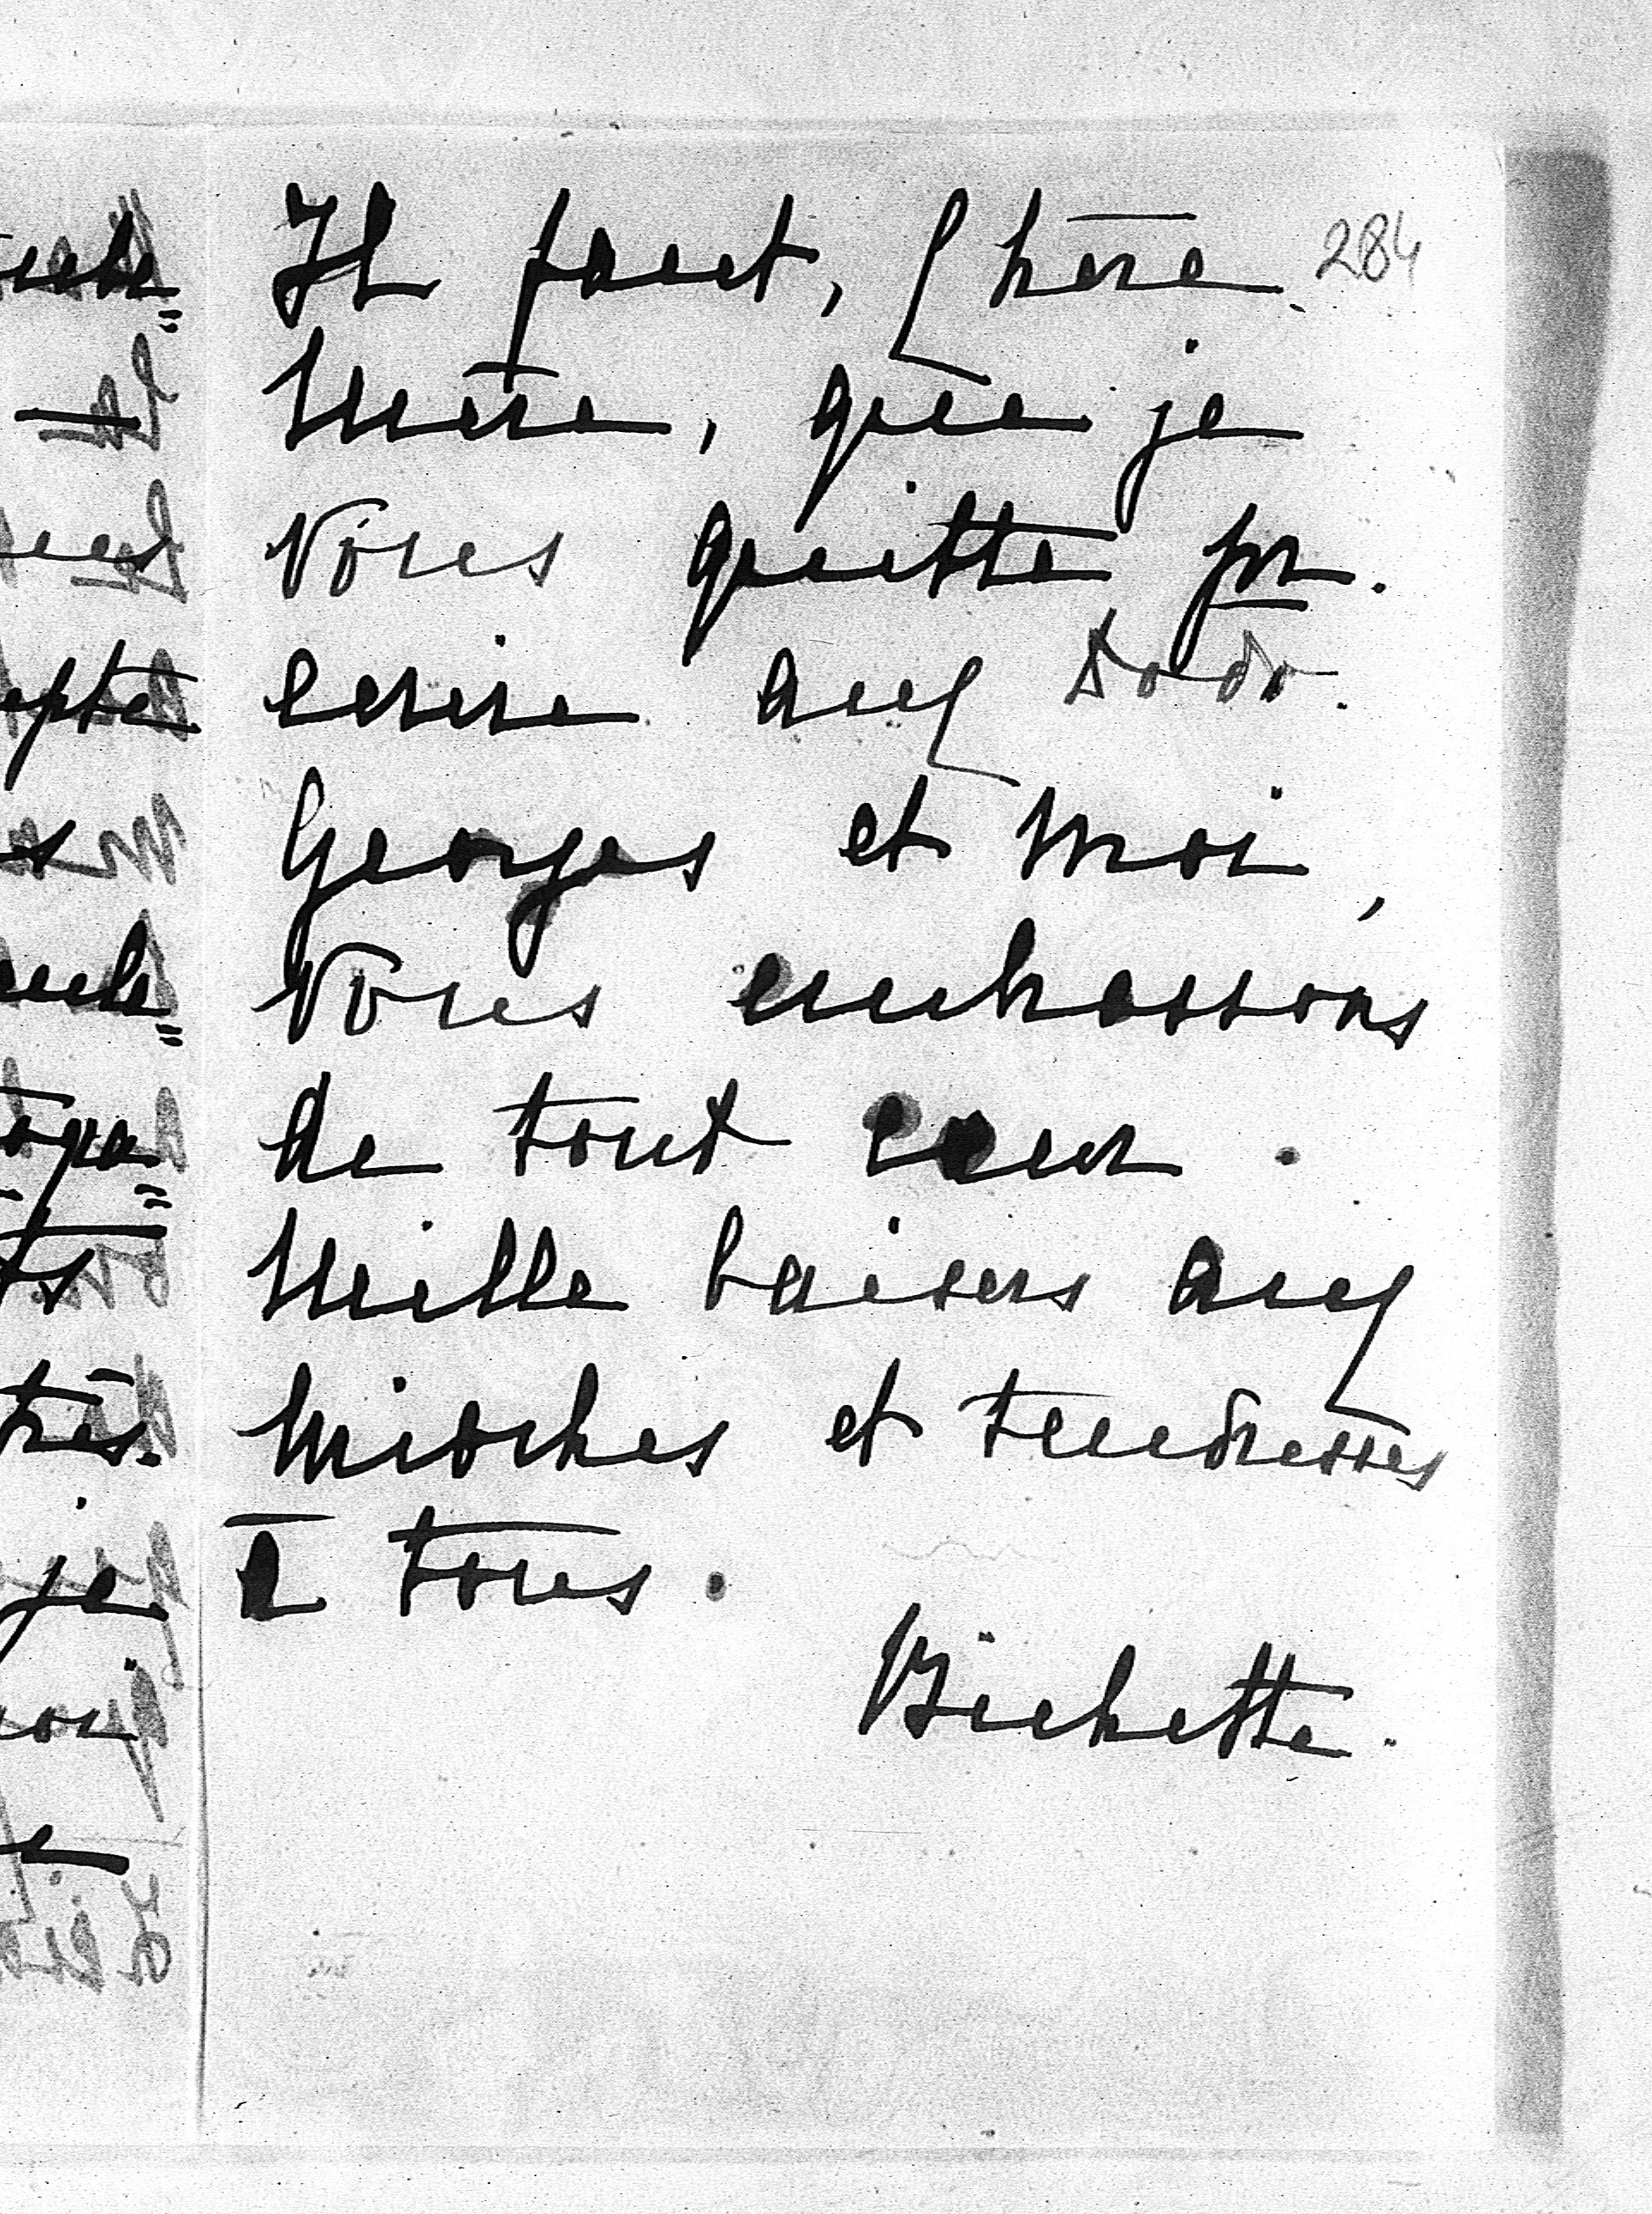 284
Il faut, Chère
Mère, que je
Vous quitte pr.
ecrire aux Dodo.
Georges et Moi,
Vous embrassons
de tout cœur.
Mille baisers aux
Mioches et tendresses
à tous.
Bichette.